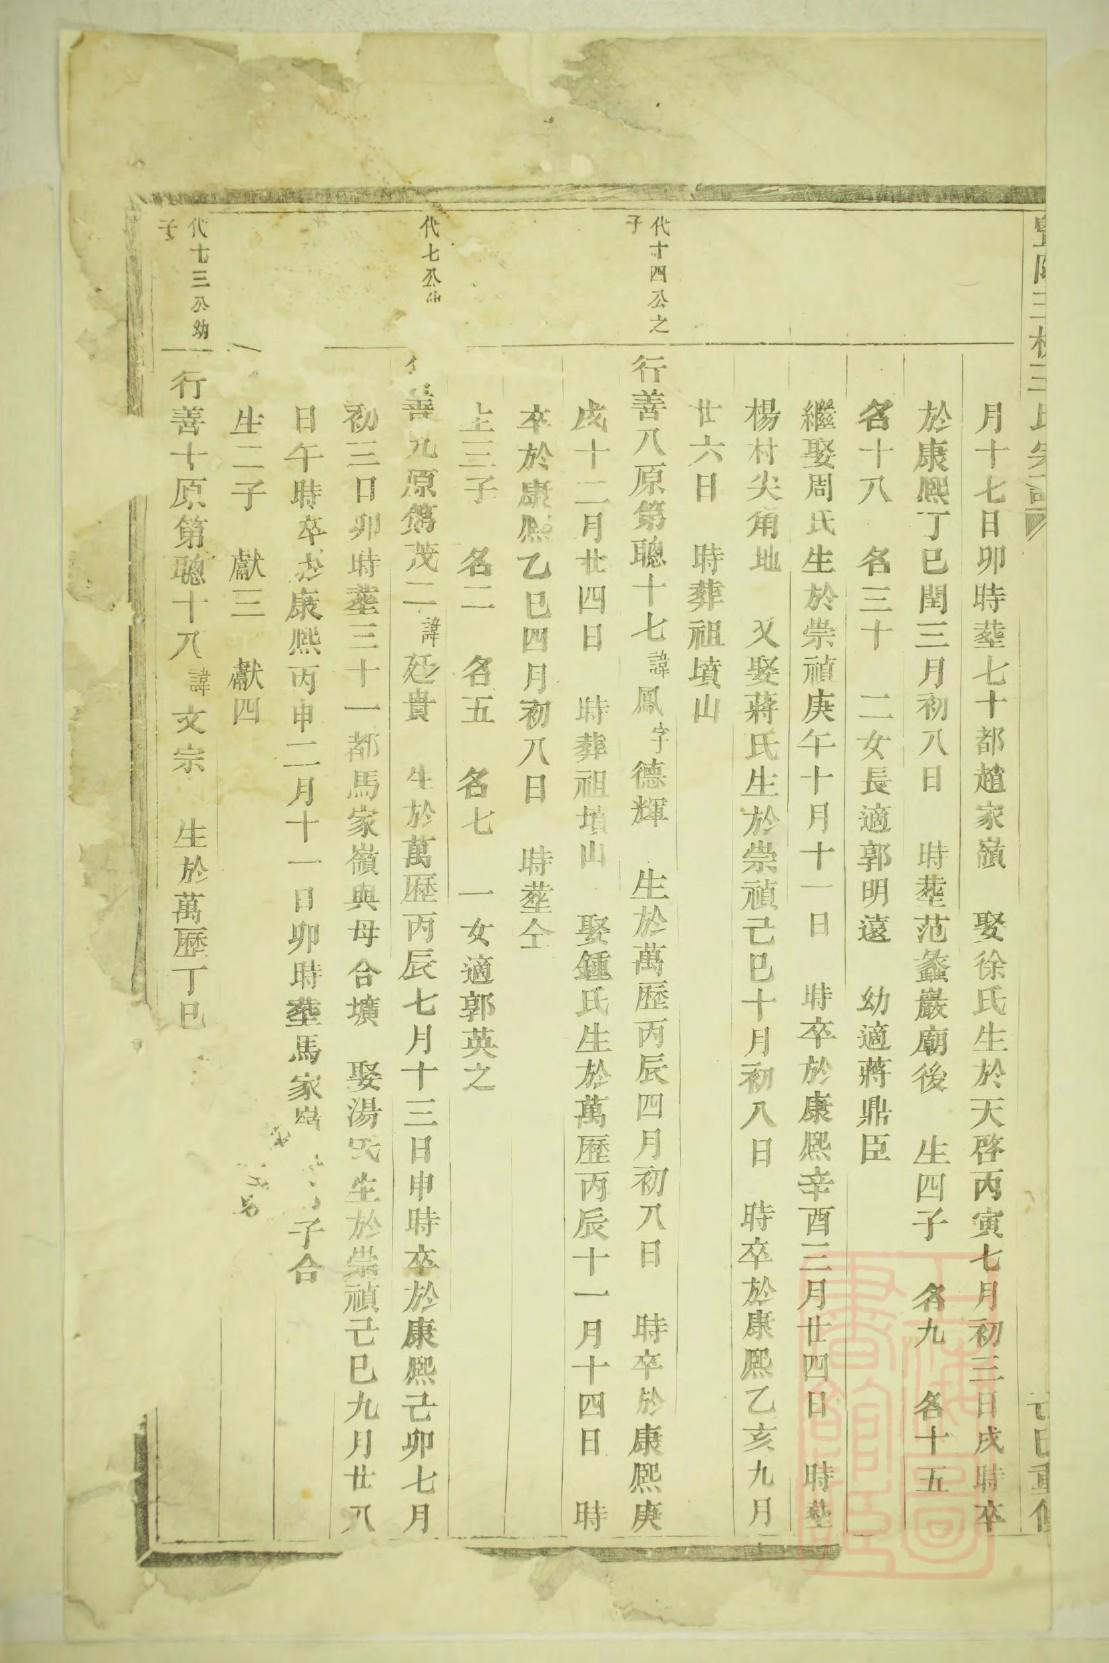 月十七日卯時塟七十都趙家嶺　娶徐氏生於天啓丙寅七月初三日戌時卒
於康熈丁巳閏三月初八日　時塟范蠡巖廟後　生四子　名九　名十五
名十八　名三十　二女長適郭明遠　幼適蔣鼎臣
繼娶周氏生於崇禎庚午十月十一日　時卒於康熈辛酉三月廿四日　時塟
楊村尖角地　又娶蔣氏生於崇禎己巳十月初八日　時卒於康熈乙亥九月
廿六日　時葬祖墳山
代十四公之子
行善八原第聰十七諱鳳字德輝　生於萬歷丙辰四月初八日　時卒於康熈庚
戌十二月廿四日　時葬祖墳山　娶鍾氏生於萬歷丙辰十一月十四日　時
卒於康熈乙巳四月初八日　時塟仝
生三子　名二　名五　名七　一女適郭英之
代七公仙
善九原第茂二諱廷貴　生於萬歷丙辰七月十三日申時卒於康熈己卯七月
初三日卯時塟三十一都馬家嶺與母合壙　娶湯氏生於崇禎己巳九月廿八
日午時卒於康熈丙申二月十一日卯時塟馬家　子合
生二子　獻三　獻四
代十三公幼子
行善十原第聰十八諱文宗　生於萬歷丁巳